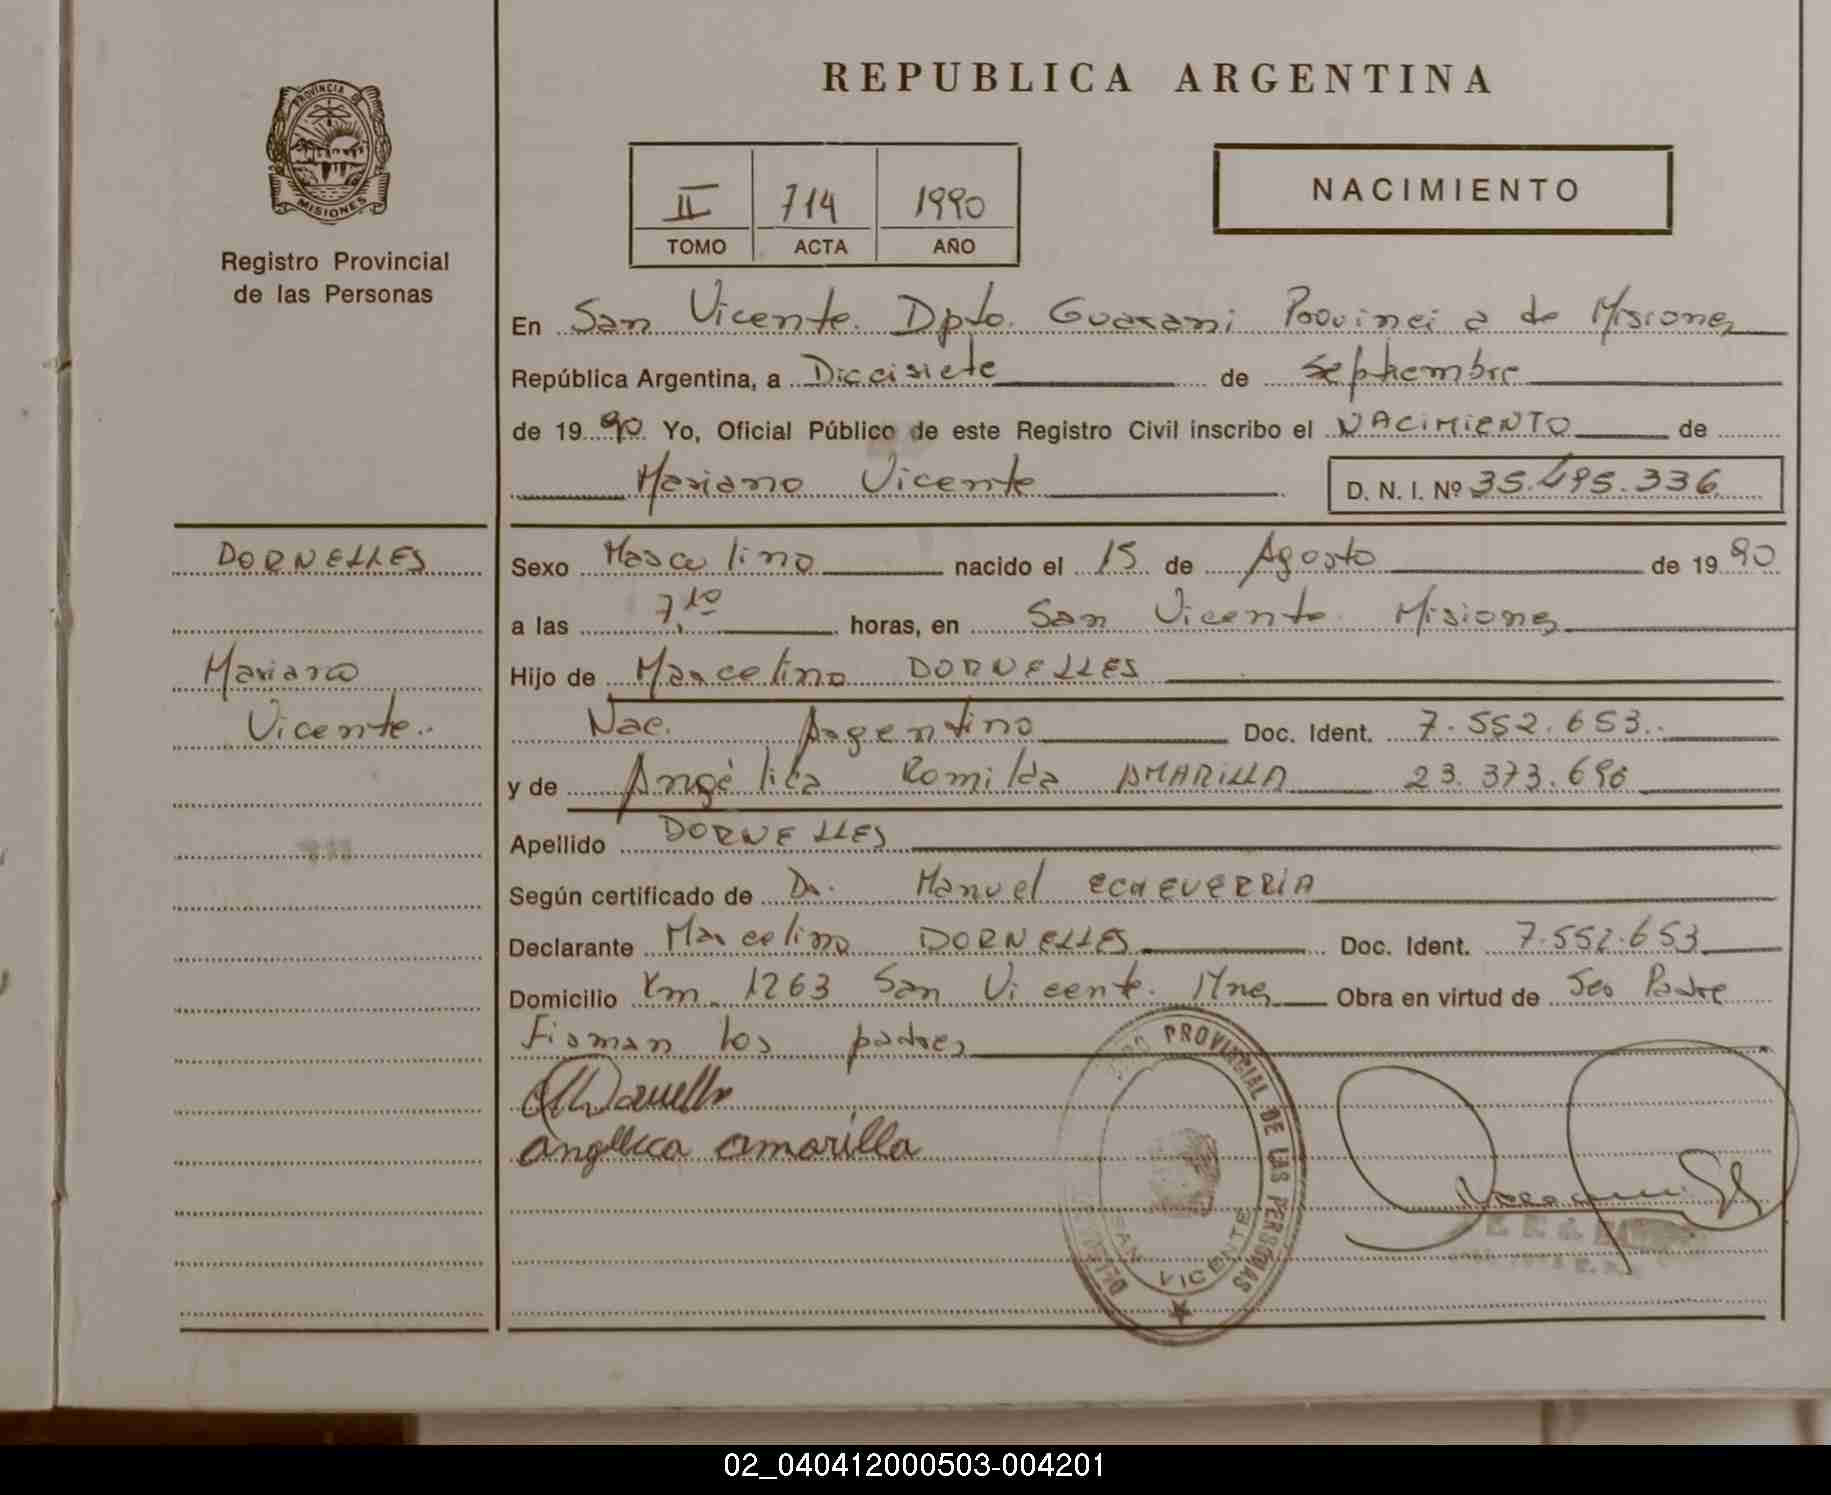 PROVINCIA DE
MISIONES
Registro Provincial
de las Personas
DORNELLES
Mariano
Vicente.
REPUBLICA ARGENTINA
II 714 1990
TOMO ACTA AÑO
NACIMIENTO
En San Vicente. Dpto. Guarani Provincia de Misiones
República Argentina, a Diecisiete de Septiembre
de 1990 Yo, Oficial Público de este Registro Civil inscribo el NACIMIENTO de
Mariano Vicente D. N. I. Nº 35.495.336
Sexo Masculino nacido el 15 de Agosto de 1990
a las 7,10 horas, en San Vicente Misiones
Hijo de Marcelino DORNELLES
Nac. Argentino Doc. Ident. 7.552.653.
y de Angélica Romilda AMARILLA 23.373.696
Apellido DORNELLES
Según certificado de Dr. Manuel ECHEVERRIA
Declarante Marcelino DORNELLES Doc. Ident. 7.552.653
Domicilio Km. 1263 San Vicente. Mnes Obra en virtud de Ser Padre
Firman los padres
angelica amarilla
PROVINCIAL DE LAS PERSONAS
SAN VICENTE
02_040412000503-004201